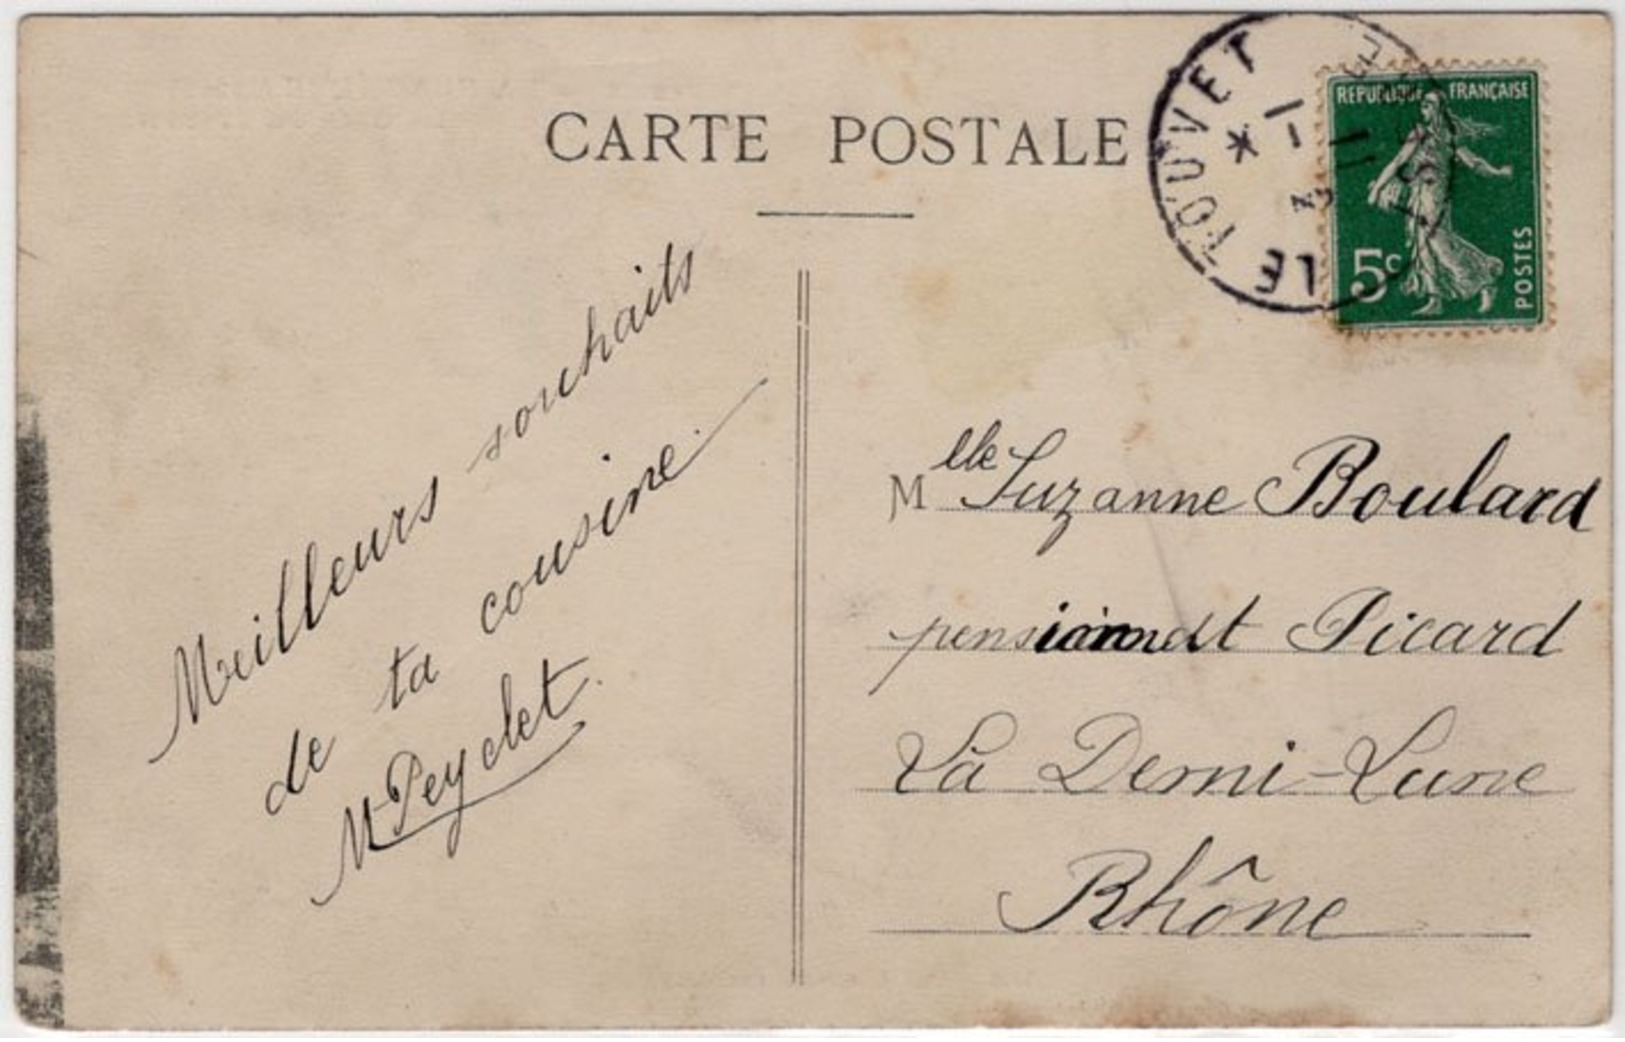 CARTE POSTALE
LE TOUVET
REPUBLIQUE FRANÇAISE
5c
POSTES
Meilleurs souhaits
de ta cousine.
M Peyclet.
Mlle Suzanne Boulard
Picard
La Demi-Lune
Rhône